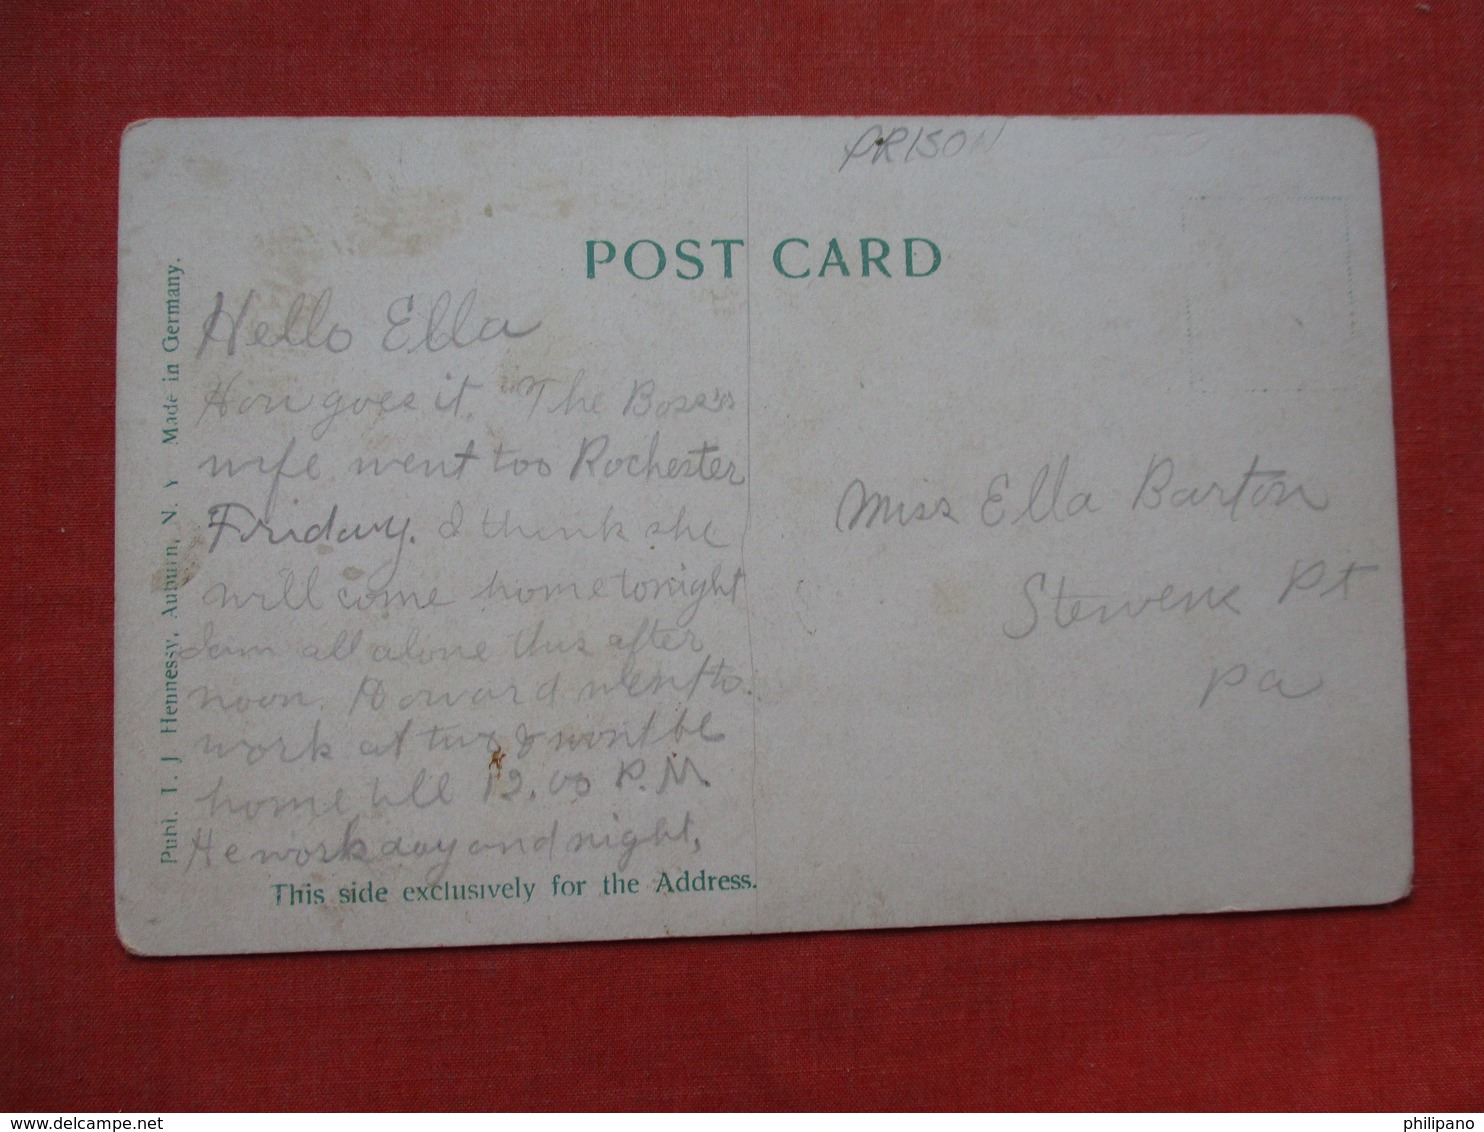 PRISON
POST CARD
Hello Ella
How goes it. The Boss's
wife went too Rochester
Friday. I think she
will come home tonight
I am all alone this after
noon. Howard went to
work at two & wont be
home till 12.00 P.M.
He work day and night,
This side exclusively for the Address.
Miss Ella Barton
Stevens Pt
Pa
Publ. T. J Hennessy, Auburn, N. Y Made in Germany.
http://www.delcampe.net
philipano